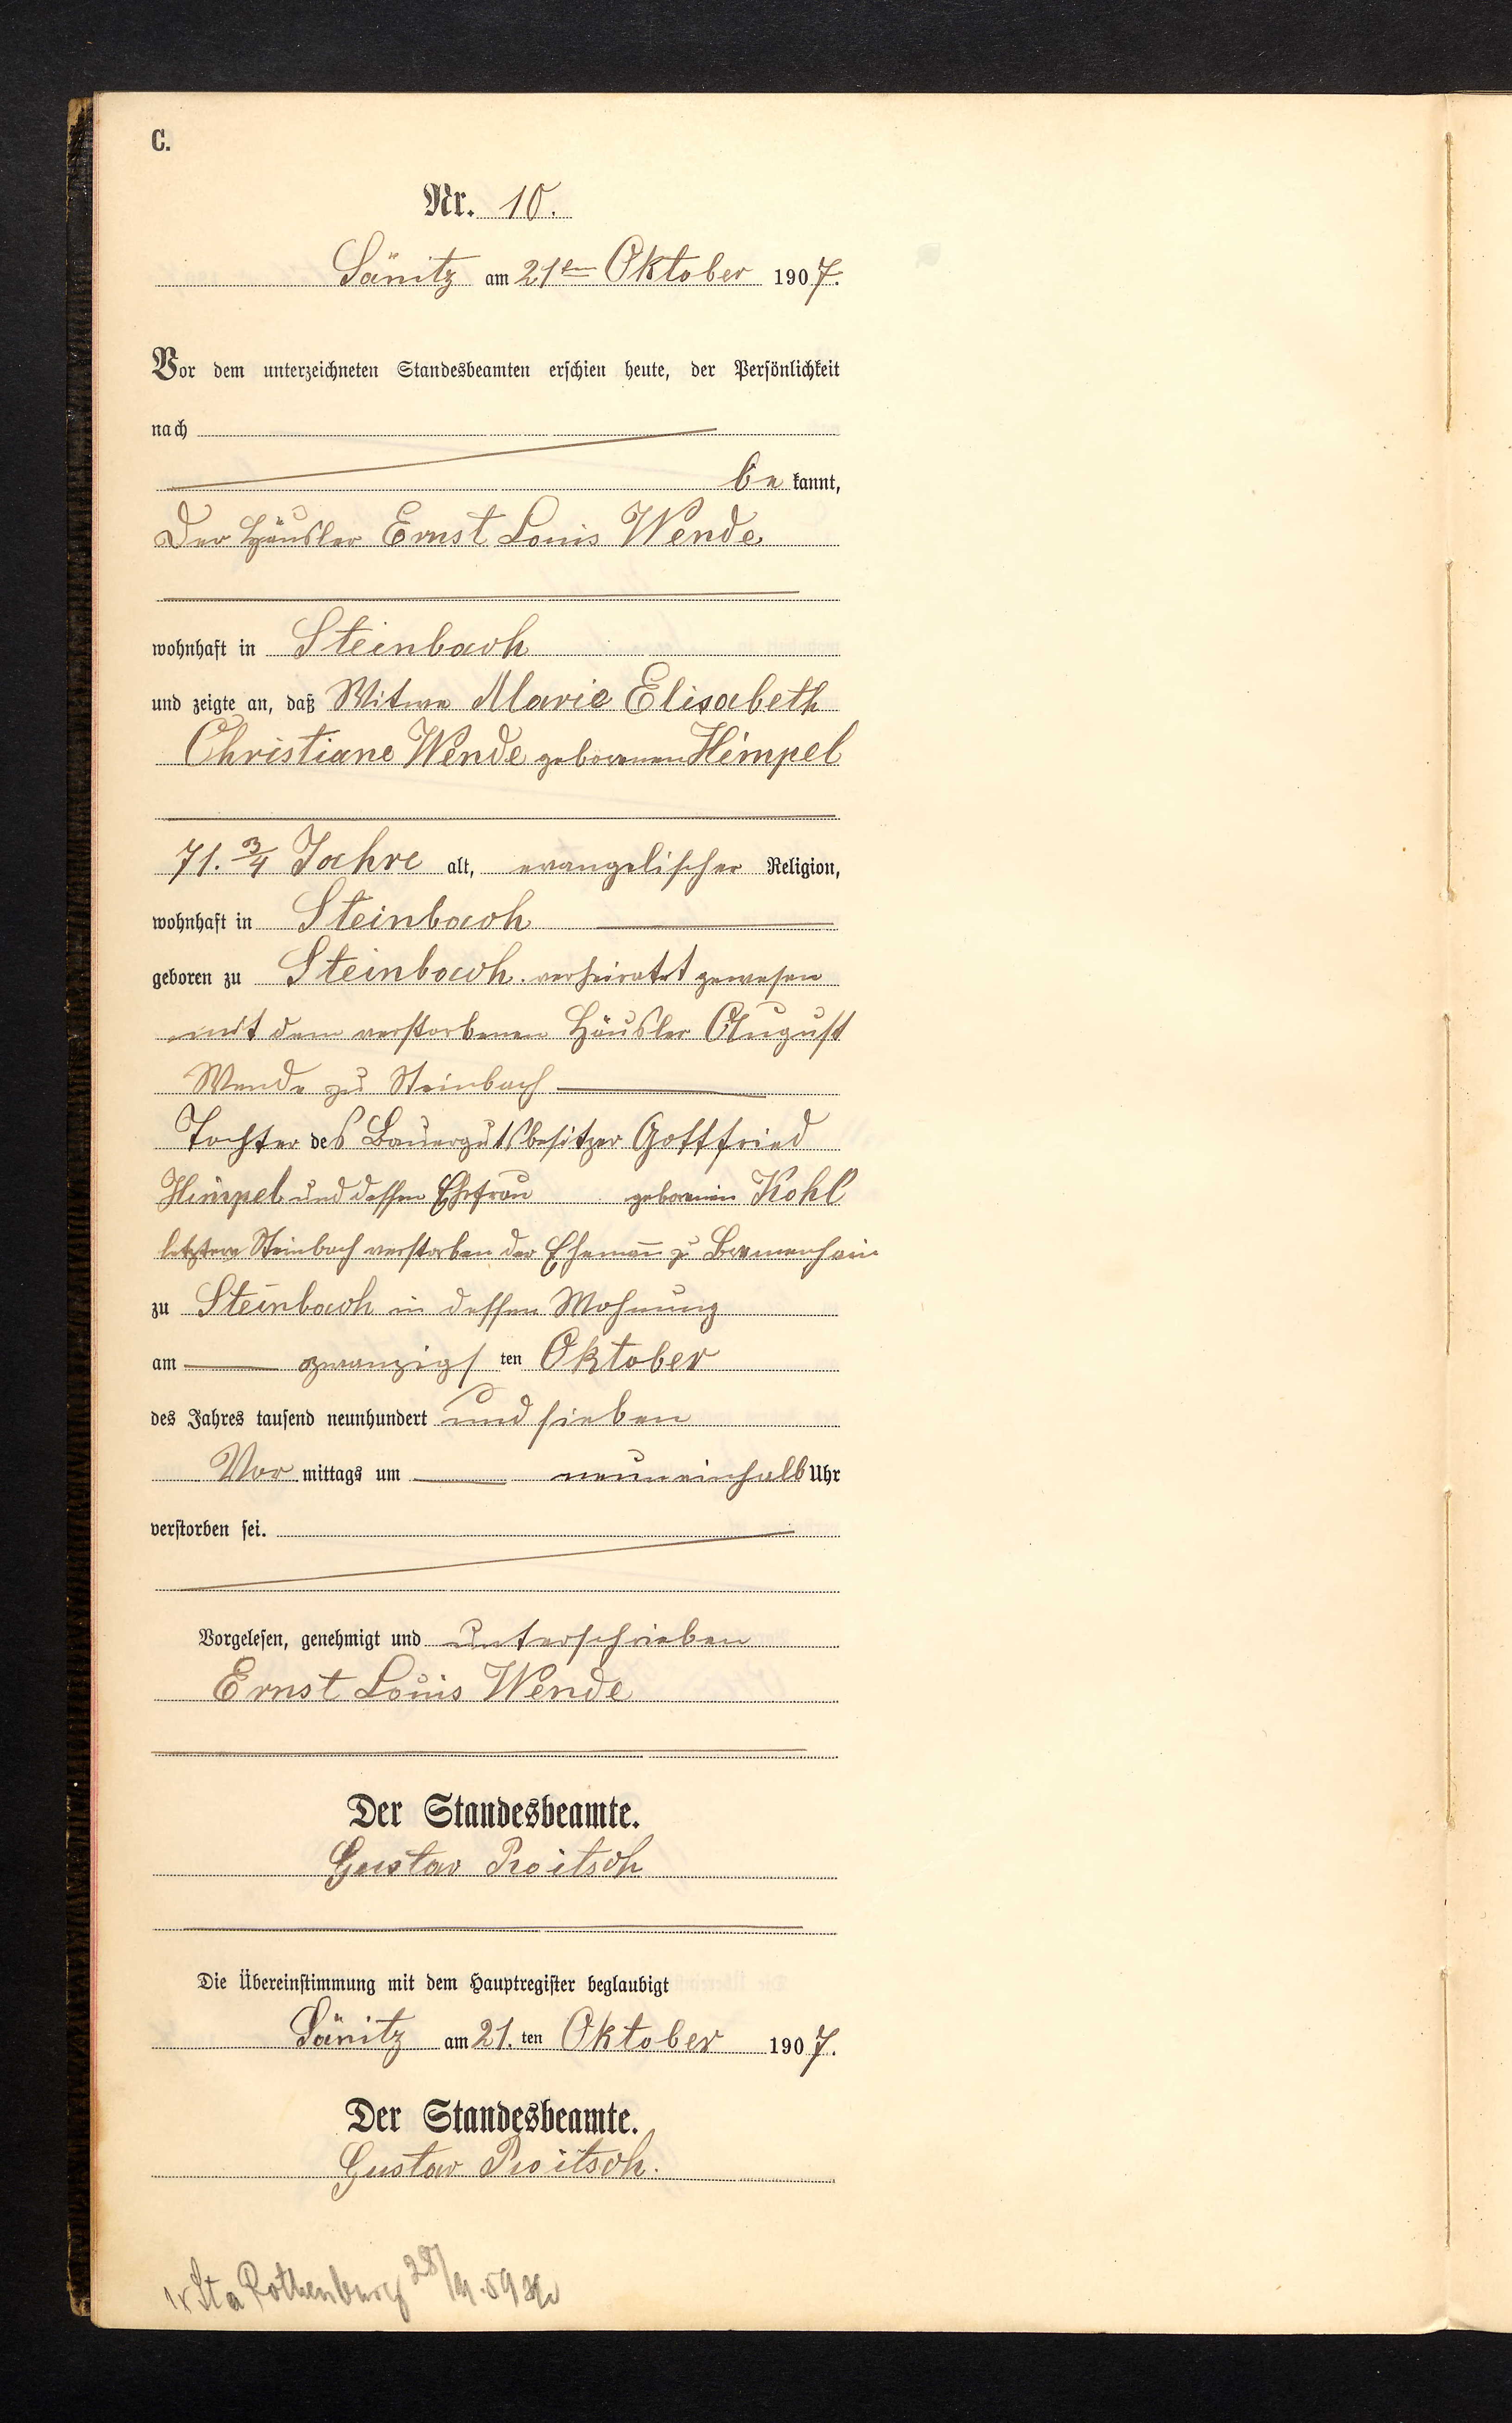 C.
Nr. 10.
Sänitz am 21ten Oktober 1907.
Vor dem unterzeichneten Standesbeamten erschien heute, der Persönlichkeit
nach
be kannt,
Der Häusler Ernst Louis Wende
wohnhaft in Steinbach
und zeigte an, daß Witwe Marie Elisabeth
Christiane Wende geborenen Himpel
71. 3/4 Jahre alt, evangelischer Religion,
wohnhaft in Steinbach
geboren zu Steinbach. verheiratet gewesen
mit dem verstorbenen Häusler August
Wende zu Steinbach
Tochter des Bauergutsbesitzer Gottfried
Himpel und dessen Ehefrau geborenen Kohl
letztere Steinbach verstorben der Ehemann zu
zu Steinbach in dessen Wohnung
am zwanzigs ten Oktober
des Jahres tausend neunhundert und sieben
Vor mittags um neun einhalb Uhr
verstorben sei.
Vorgelesen, genehmigt und unterschrieben
Ernst Louis Wende
Der Standesbeamte.
Gustav Proitsch
Die Übereinstimmung mit dem Hauptregister beglaubigt
Sänitz am 21. ten Oktober 1907.
Der Standesbeamte.
Gustav Proitsch.
Sta Rothenburg